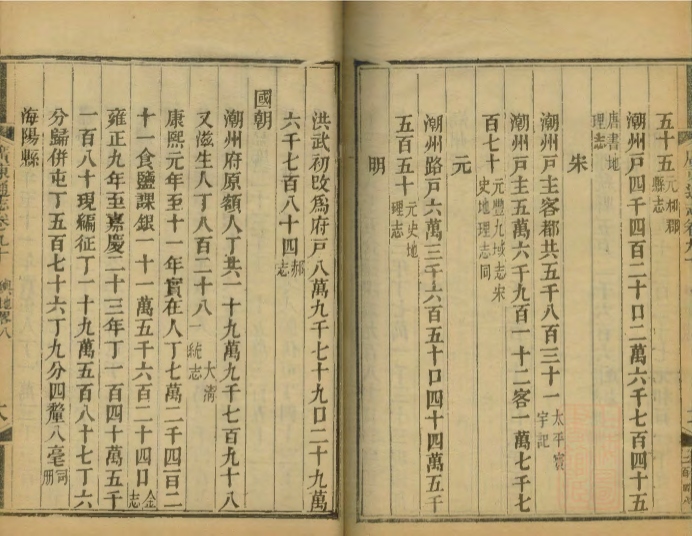 五十五元和郡縣志
潮州戶四千四百二十口二萬六千七百四十五
唐書地理志
宋
潮州戶主客都共五千八百三十一太平寰宇記
潮州戶主五萬六千九百一十二客一萬七千七
百七十元豐九域志宋史地理志同
元
潮州路戶六萬三千六百五十口四十四萬五千
五百五十元史地理志
明
洪武初改爲府戶八萬九千七十九口二十九萬
六千七百八十四郝志
國朝
潮州府原額人丁共一十九萬九千七百九十八
又滋生人丁八百二十八大清一統志
康熙元年至十一年實在人丁七萬二千四百二
十一食鹽課銀一十一萬五千六百二十四口金志
雍正九年至嘉慶二十三年丁一百四十萬五千
一百八十現編征丁一十九萬五百八十七丁六
分歸併屯丁五百七十六丁九分四釐八毫司冊
海陽縣
廣東通志卷九十 輿地畧八